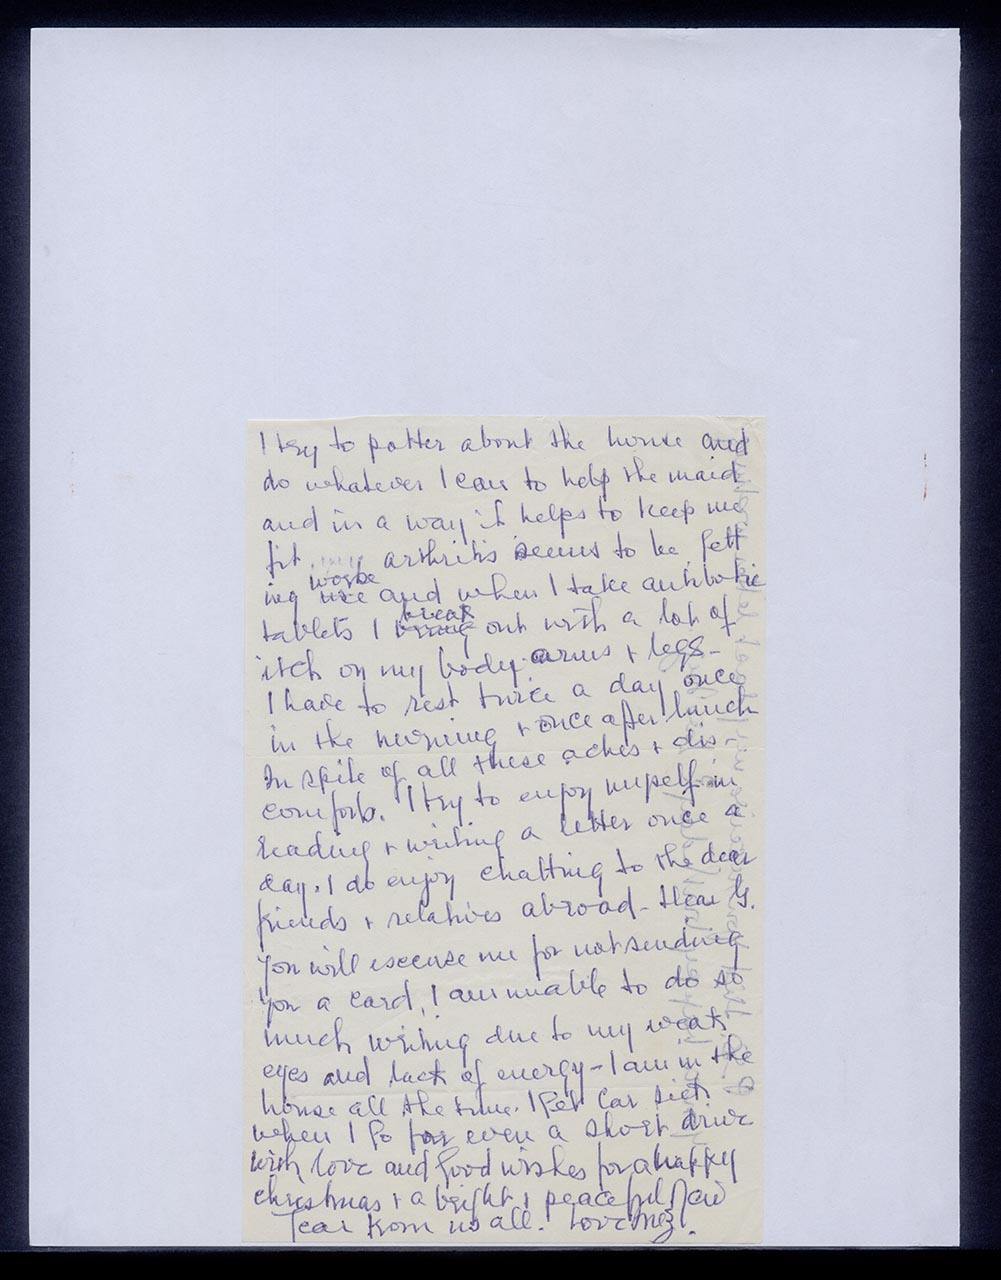 I try to potter about the house and
do whatever I can to help the maid
and in a way it helps to keep me
fit. my arthritis seems to be gett
ing worse and when I take antibotic
tablets I break out with a lot of
itch on my body arms + legs -
I have to rest twice a day once
in the morning + once after lunch
In spite of all these aches + dis-
comforts. I try to enjoy myself in
reading + writing a letter once a
day. I do enjoy chatting to the dear
friends + relatives abroad - Dear G.
you will excuse me for not sending
you a card, I am unable to do so
much writing due to my weak
eyes and lack of energy - I am in the
house all the time. I get car sick
when I go for even a short drive
with love and good wishes for a happy
christmas + a bright + peaceful New
Year from us all. Love